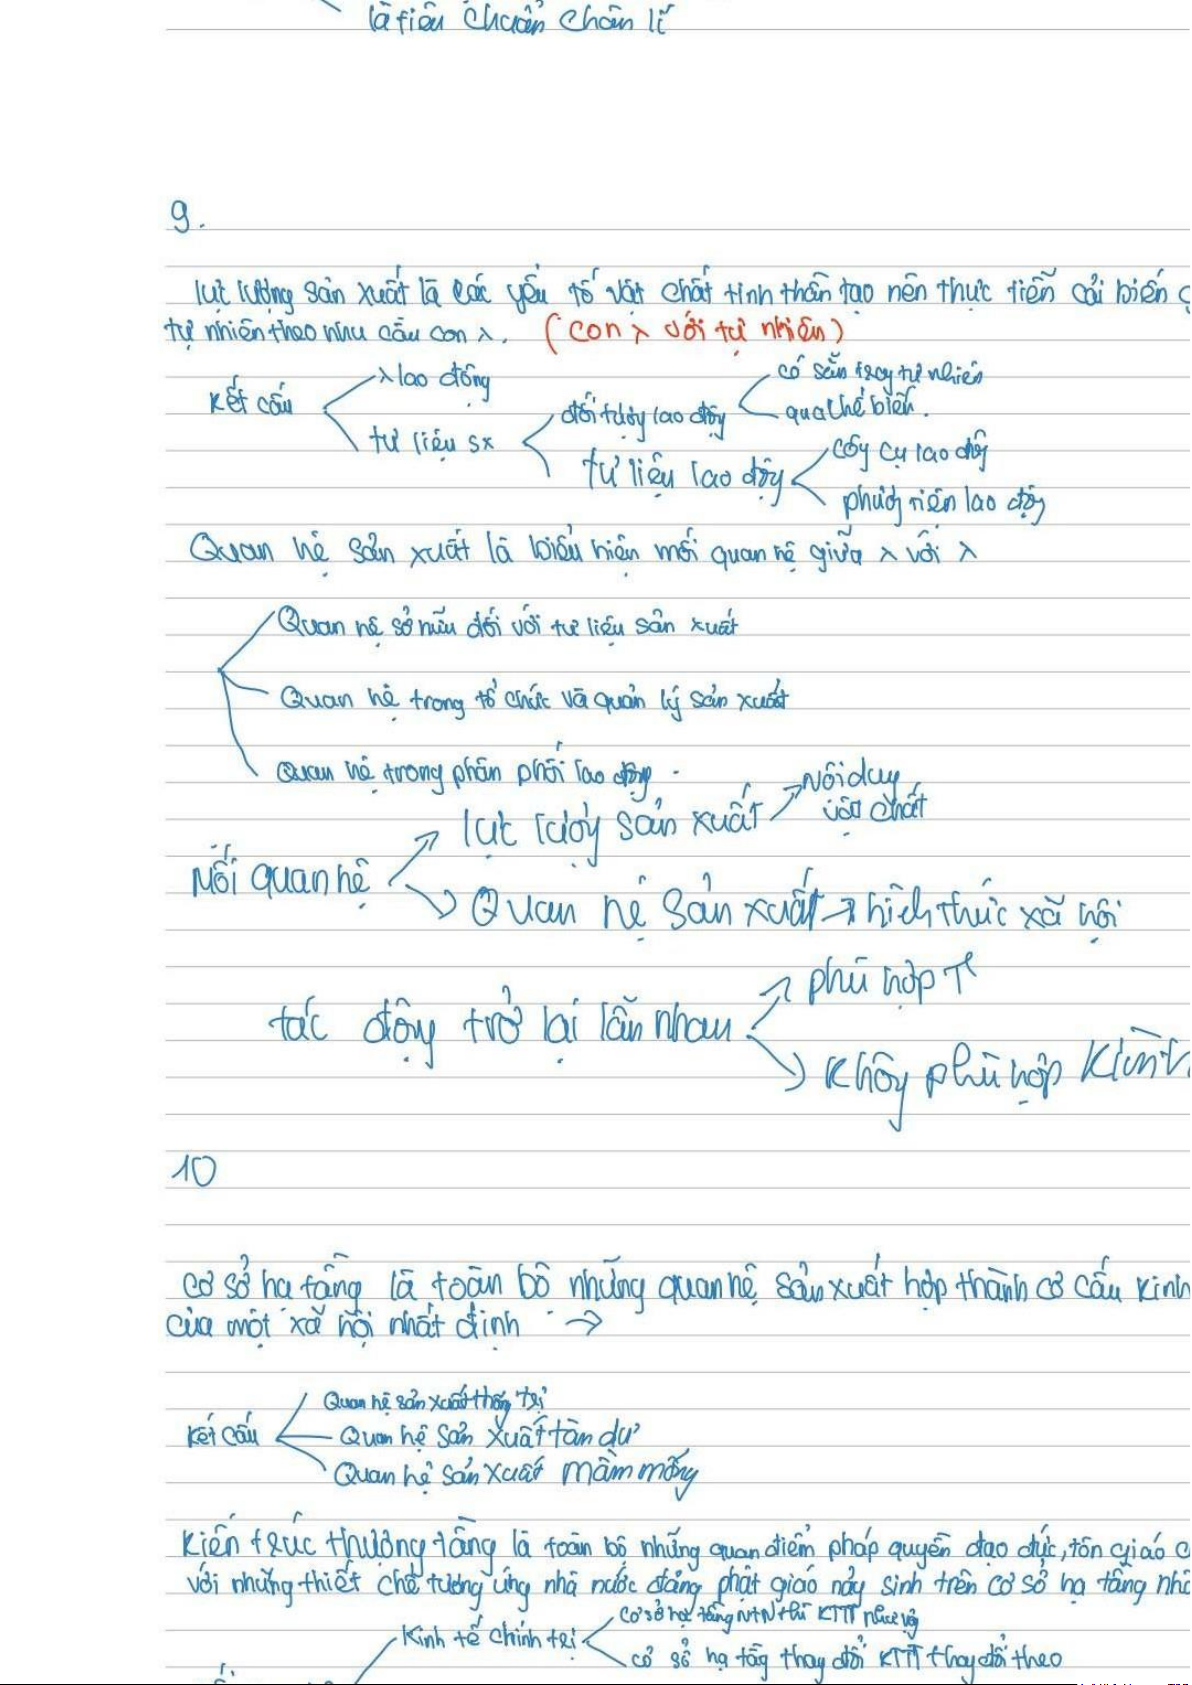 là tiêu chuẩn chân lí
9.
lực lượng sản xuất là các yếu tố vật chất tinh thần tạo nên thực tiễn cải biến
tự nhiên theo nhu cầu con λ. (con λ với tự nhiên)
kết cấu
λ lao động
tư liệu sx
đối tượng lao động
có sẵn trong tự nhiên
qua chế biến.
tư liệu lao động
công cụ lao động
phương tiện lao động
Quan hệ sản xuất là biểu hiện mối quan hệ giữa λ với λ
Quan hệ sở hữu đối với tư liệu sản xuất
Quan hệ trong tổ chức và quản lý sản xuất
Quan hệ trong phân phối lao động.
Mối quan hệ
lực lượng sản xuất
Nội dung
vật chất
Quan hệ sản xuất → hình thức xã hội
tác động trở lại lẫn nhau
phù hợp
Không phù hợp
10
cơ sở hạ tầng là toàn bộ những quan hệ sản xuất hợp thành cơ cấu kinh
của một xã hội nhất định →
Kết cấu
Quan hệ sản xuất thống trị
Quan hệ sản xuất tàn dư
Quan hệ sản xuất mầm mống
Kiến trúc thượng tầng là toàn bộ những quan điểm pháp quyền đạo đức, tôn giáo
với những thiết chế tương ứng nhà nước đảng phật giáo nảy sinh trên cơ sở hạ tầng
Kinh tế chính trị
cơ sở hạ tầng NTN thì KTTT như vậy
cơ sở hạ tầng thay đổi KTTT thay đổi theo